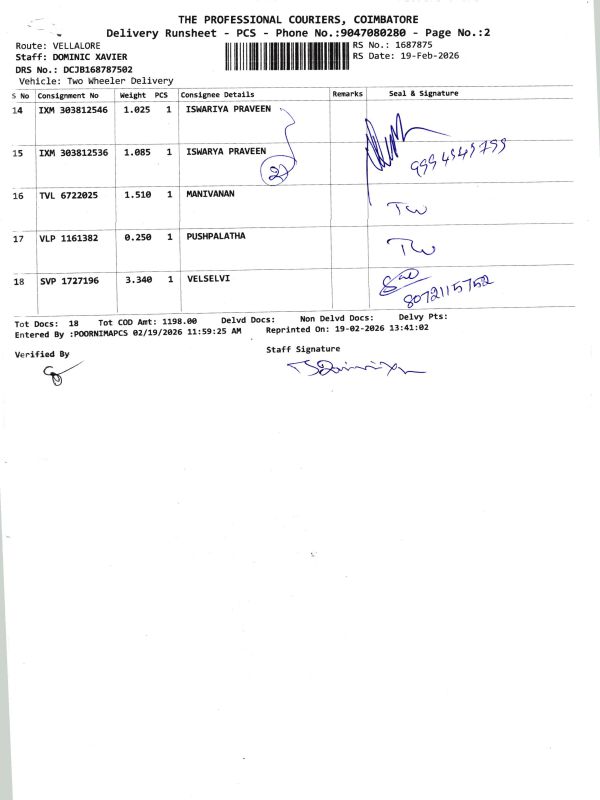 THE PROFESSIONAL COURIERS, COIMBATORE
Delivery Runsheet - PCS - Phone No.:9047080280 - Page No.:2
Route: VELLALORE
RS No.: 1687875
Staff: DOMINIC XAVIER
RS Date: 19-Feb-2026
DRS No.: DCJB168787502
Vehicle: Two Wheeler Delivery
S No Consignment No Weight PCS Consignee Details Remarks Seal & Signature
14 IXM 303812546 1.025 1 ISWARIYA PRAVEEN
15 IXM 303812536 1.085 1 ISWARYA PRAVEEN
2
9994545799
16 TVL 6722025 1.510 1 MANIVANAN TW
17 VLP 1161382 0.250 1 PUSHPALATHA TW
18 SVP 1727196 3.340 1 VELSELVI
8072115752
Tot Docs: 18 Tot COD Amt: 1198.00 Delvd Docs: Non Delvd Docs: Delvy Pts:
Entered By :POORNIMAPCS 02/19/2026 11:59:25 AM Reprinted On: 19-02-2026 13:41:02
Verified By
Staff Signature